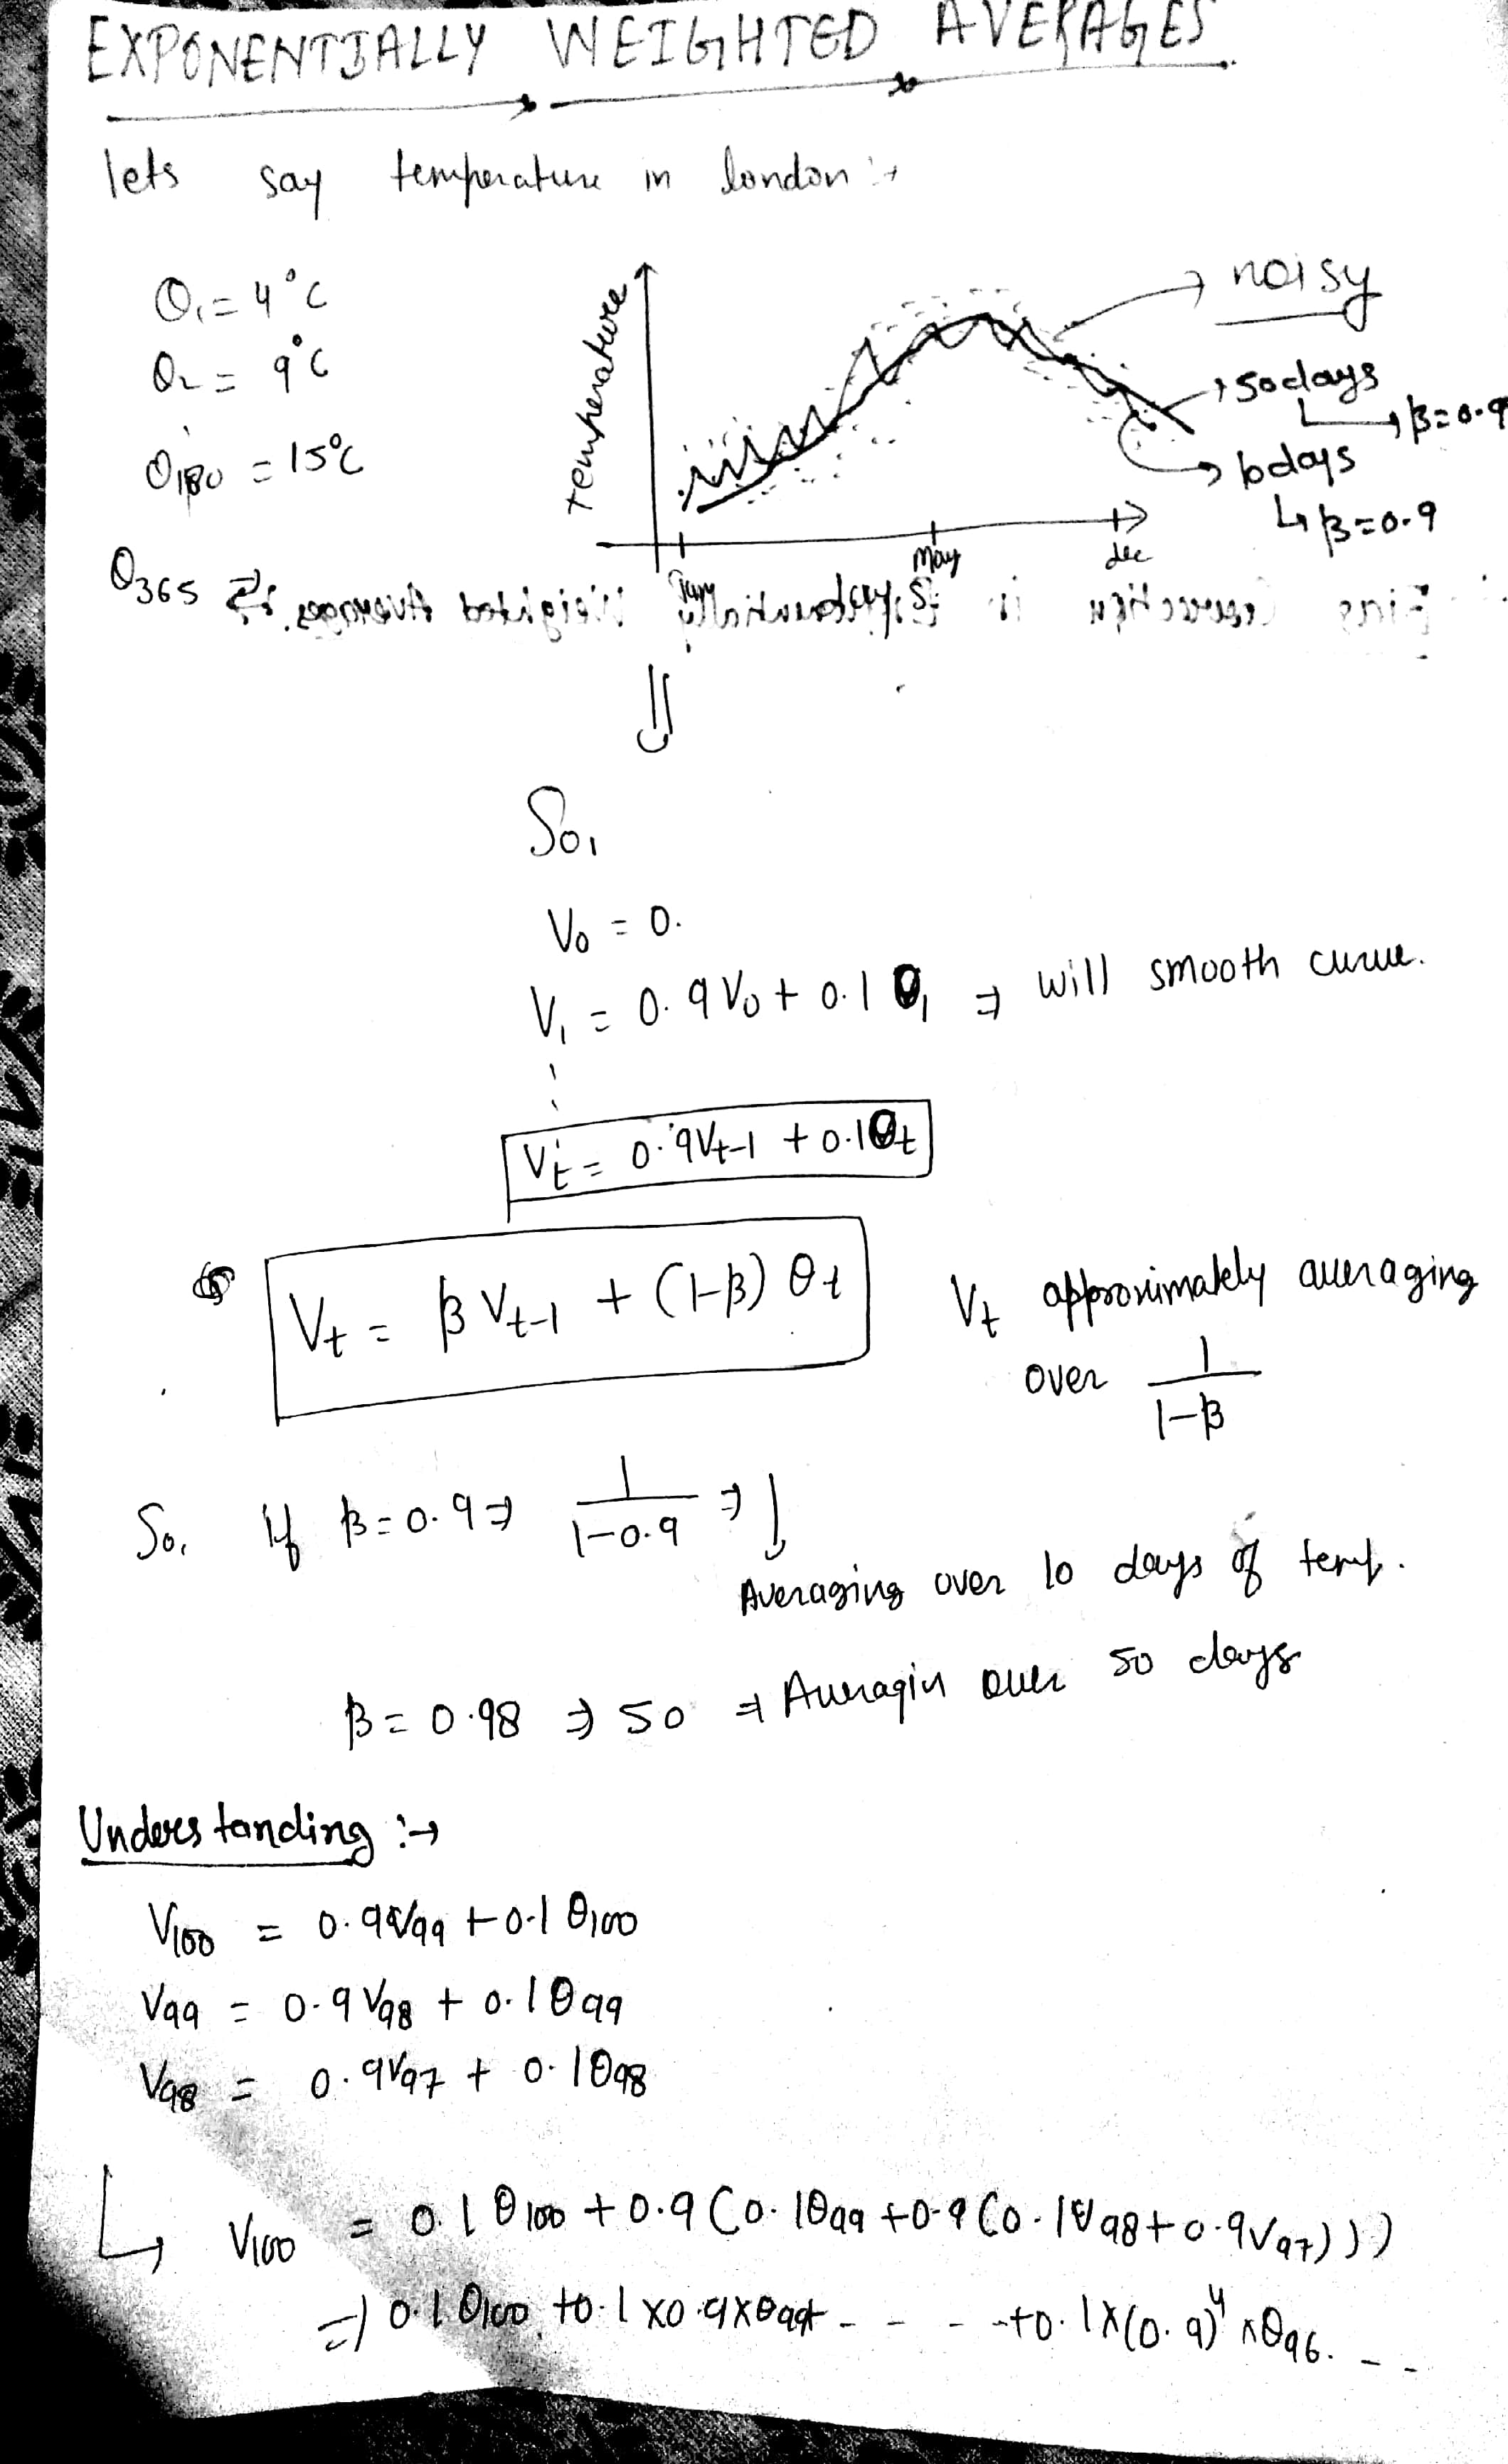 EXPONENTIALLY WEIGHTED AVERAGES
lets say temperature in london :→
θ₁ = 4°C
θ₂ = 9°C
θ₁₈₀ = 15°C
θ₃₆₅
temperature
Jan
May
dec
days
noisy
→ 50days
↳ β=0.9
→ 10days
↳ β=0.9
So,
V₀ = 0.
V₁ = 0.9V₀ + 0.1θ₁ ⇒ will smooth curve.
Vt = 0.9Vt-1 + 0.1θt
Vt = βVt-1 + (1-β)θt
Vt approximately averaging
over 1/(1-β)
So, if β=0.9 ⇒ 1/(1-0.9) ⇒
Averaging over 10 days of temp.
β = 0.98 ⇒ 50 ⇒ Averagin over 50 days
Understanding :→
V₁₀₀ = 0.9V₉₉ + 0.1θ₁₀₀
V₉₉ = 0.9V₉₈ + 0.1θ₉₉
V₉₈ = 0.9V₉₇ + 0.1θ₉₈
↳ V₁₀₀ = 0.1θ₁₀₀ + 0.9(0.1θ₉₉ + 0.9(0.1θ₉₈ + 0.9V₉₇)))
⇒ 0.1θ₁₀₀ + 0.1x0.9xθ₉₉+ - - - -+0.1x(0.9)⁴xθ₉₆. - -